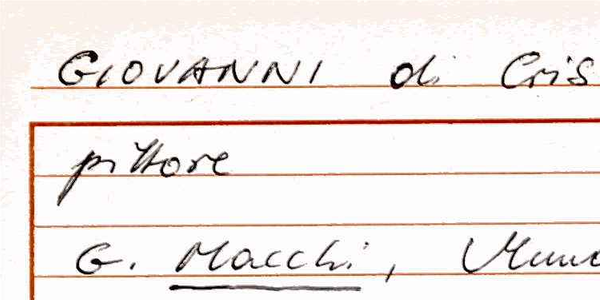 GIOVANNI di Cris
pittore
G. Macchi,